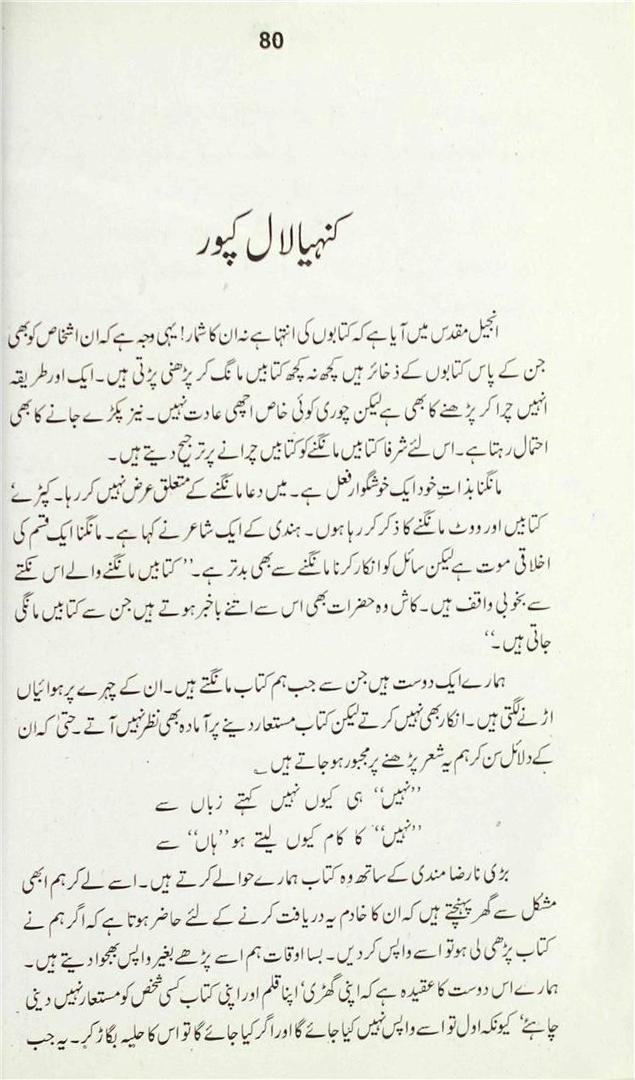 80
کنہیالال کپور
انجیل مقدس میں آیا ہے کہ کتابوں کی انتہا ہے نہ ان کا شمار! یہی وجہ ہے کہ ان اشخاص کو بھی
جن کے پاس کتابوں کے ذخائر ہیں کچھ نہ کچھ کتابیں مانگ کر پڑھنی پڑتی ہیں۔ ایک اور طریقہ
انہیں چرا کر پڑھنے کا بھی ہے لیکن چوری کوئی خاص اچھی عادت نہیں۔ نیز پکڑے جانے کا بھی
احتمال رہتا ہے۔ اس لئے شرفا کتابیں مانگنے کو کتابیں چرانے پر ترجیح دیتے ہیں۔
مانگنا بذاتِ خود ایک خوشگوار فعل ہے۔ میں دعا مانگنے کے متعلق عرض نہیں کر رہا۔ کپڑے‘
کتابیں اور ووٹ مانگنے کا ذکر کر رہا ہوں۔ ہندی کے ایک شاعر نے کہا ہے۔ مانگنا ایک قسم کی
اخلاقی موت ہے لیکن سائل کو انکار کرنا مانگنے سے بھی بدتر ہے۔‘‘ کتابیں مانگنے والے اس نکتے
سے بخوبی واقف ہیں۔ کاش وہ حضرات بھی اس سے اتنے باخبر ہوتے ہیں جن سے کتابیں مانگی
جاتی ہیں۔‘‘
ہمارے ایک دوست ہیں جن سے جب ہم کتاب مانگتے ہیں۔ ان کے چہرے پر ہوائیاں
اڑنے لگتی ہیں۔ انکار بھی نہیں کرتے لیکن کتاب مستعار دینے پر آمادہ بھی نظر نہیں آتے۔ حتیٰ کہ ان
کے دلائل سن کر ہم یہ شعر پڑھنے پر مجبور ہو جاتے ہیں؎
’’نہیں‘‘ ہی کیوں نہیں کہتے زباں سے
’’نہیں‘‘ کا کام کیوں لیتے ہو ’’ہاں‘‘ سے
بڑی نارضا مندی کے ساتھ وہ کتاب ہمارے حوالے کرتے ہیں۔ اسے لے کر ہم ابھی
مشکل سے گھر پہنچتے ہیں کہ ان کا خادم یہ دریافت کرنے کے لئے حاضر ہوتا ہے کہ اگر ہم نے
کتاب پڑھی لی ہو تو اسے واپس کر دیں۔ بسا اوقات ہم اسے پڑھے بغیر واپس بھجوا دیتے ہیں۔
ہمارے اس دوست کا عقیدہ ہے کہ اپنی گھڑی‘ اپنا قلم اور اپنی کتاب کسی شخص کو مستعار نہیں دینی
چاہئے‘ کیونکہ اول تو اسے واپس نہیں کیا جائے گا اور اگر کیا جائے گا تو اس کا حلیہ بگاڑ کر۔ یہ جب